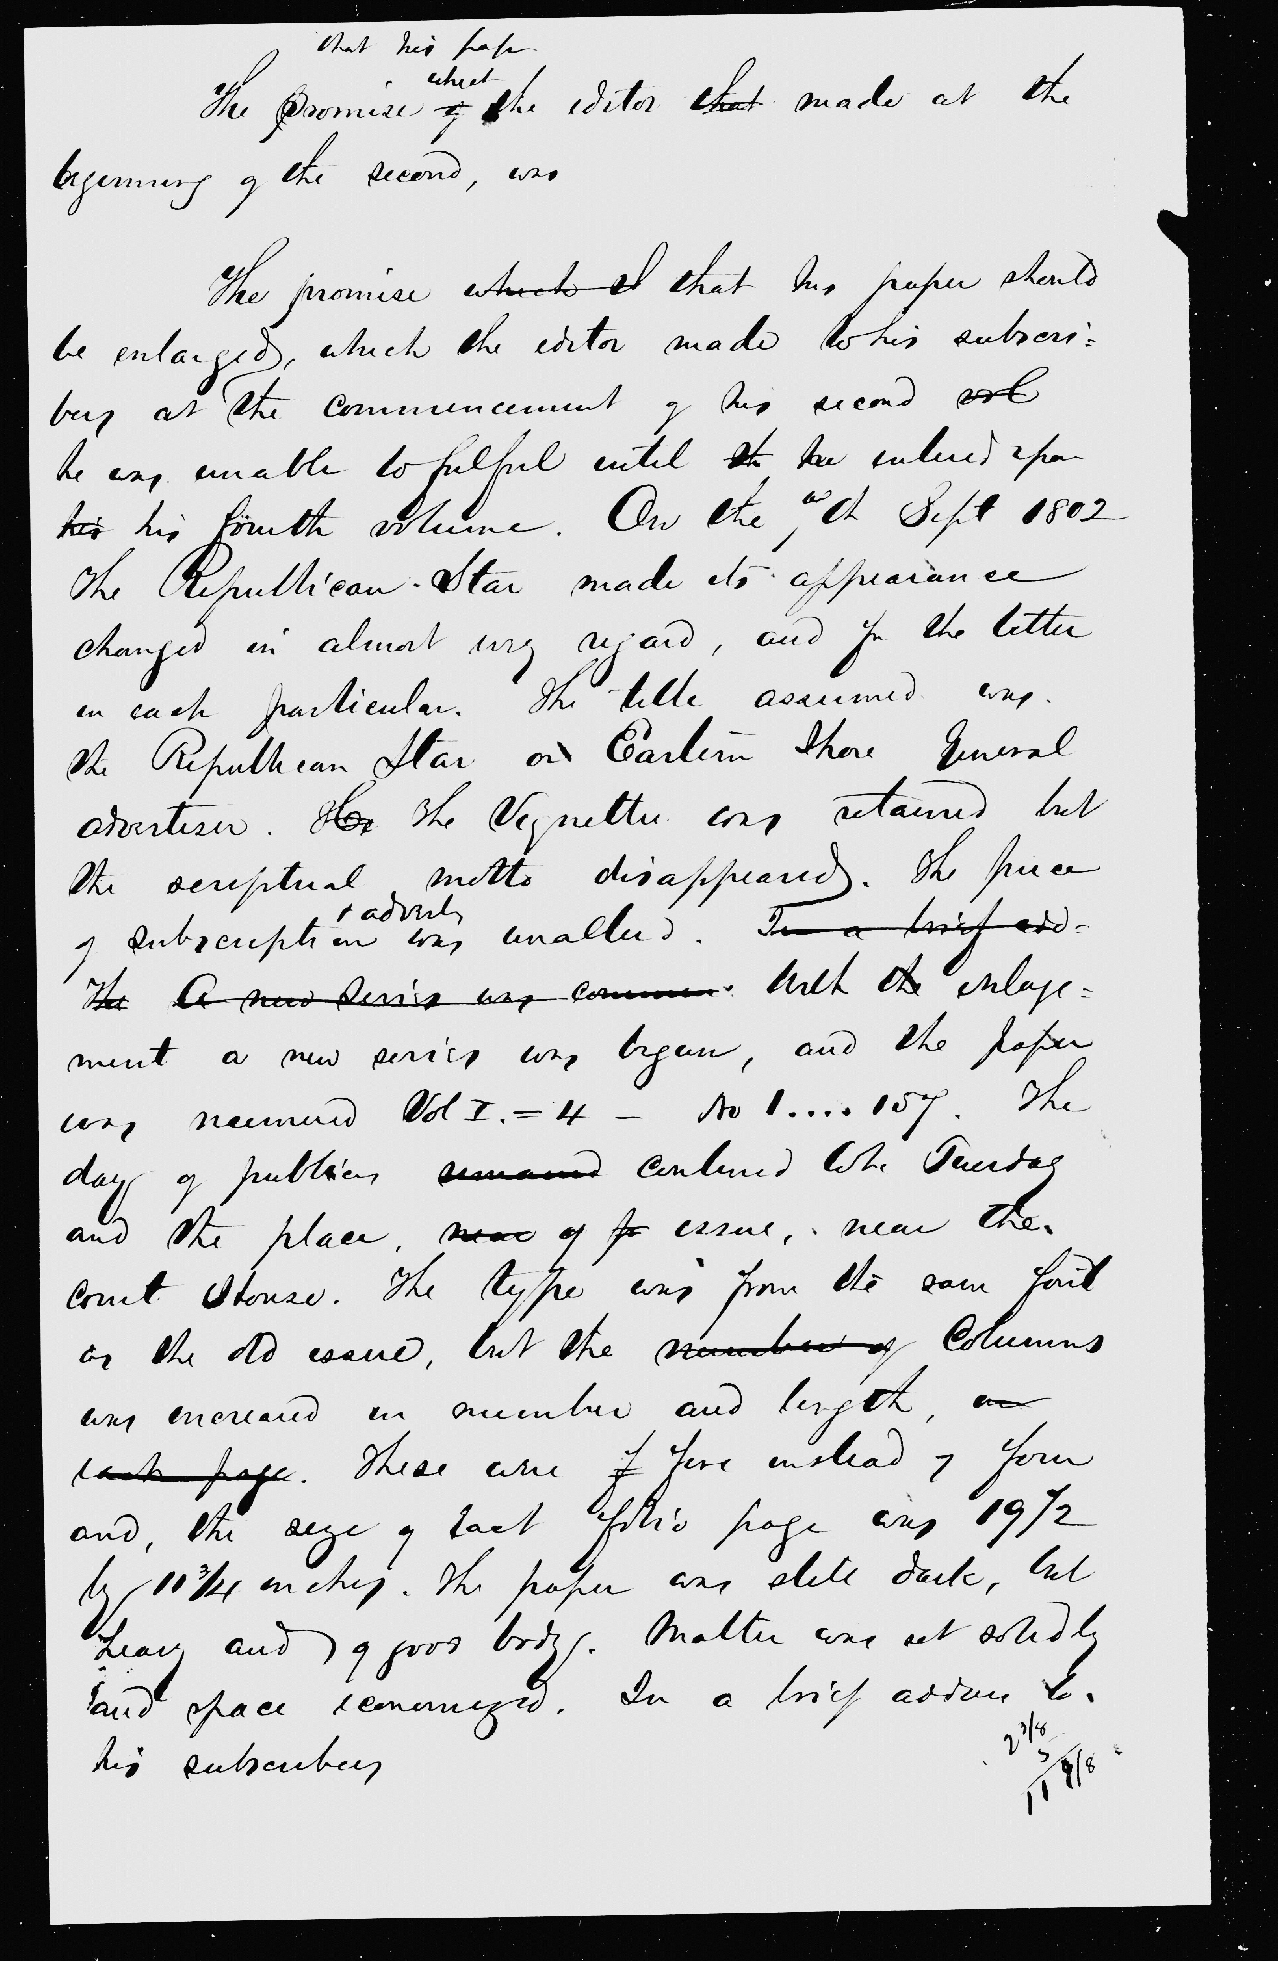 that his pap
which
The promise of the editor that made at the
beginning of the second, was
The promise which d that his paper should
be enlarged, which the editor made to his subscri=
bers at the commencement of his second vol
he was unable to fulful until th he entered upon
his his fourth volume. On the 7th Sept 1802
the Republican Star made its appearance
changed in almost every regard, and for the better
in each particular. The title assumed was
the Republican Star or Eastern Shore General
advertiser. The Vignette was retained but
the scriptual motto disappeared. The price
& adverts
of subscription was unaltered. In a brief add=
The A new series was commen. With the enlarge=
ment a new series was begun, and the paper
was numered Vol I. = 4 — No 1.... 157. The
day of publicn remained continued to be Tuesday
and the place, near of p issue, near the
court House. The type was from the same font
as the old issue, but the number of Columns
was increased in number and length, on
each page. These were f five instead of four
and, the size of each folio page was 19 1/2
by 11 3/4 inches. The paper was still dark, but
heavy and of good body. Matter was set solidly
and space economized. In a brief address to
his subscribers
2 3/8
5
11 7/8